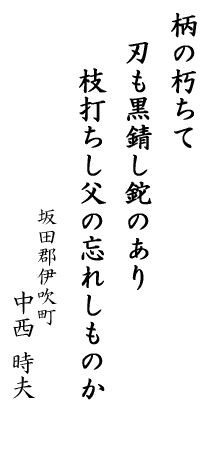 柄の朽ちて
刃も黒錆し鉈のあり
枝打ちし父の忘れしものか
坂田郡伊吹町
中西 時夫